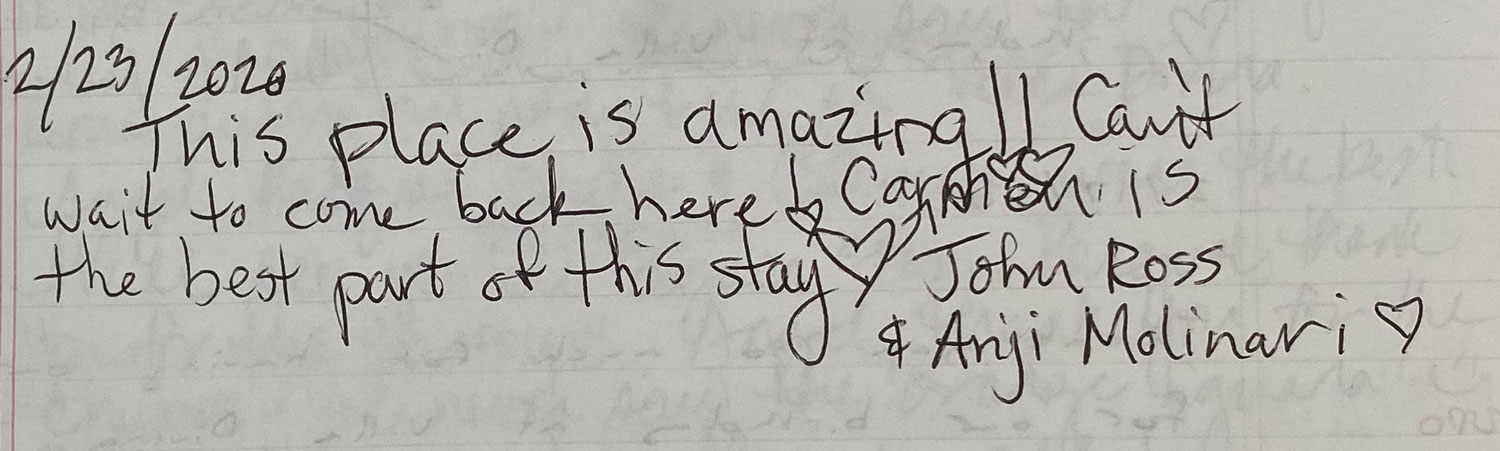 2/23/2020
This place is amazing!! Can't
wait to come back here! Carmen is
the best part of this stay ♡ John Ross
& Anji Molinari ♡